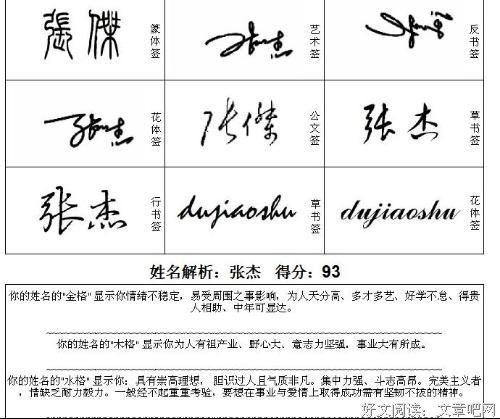 張傑
篆体签
艺术签
反书签
花体签
张傑
公文签
张杰
草书签
张杰
行书签
dujiaoshu
草书签
dujiaoshu
花体签
姓名解析：张杰 得分：93
你的姓名的"金格"显示你情绪不稳定，易受周围之事影响，为人天分高、多才多艺、好学不怠、得贵
人相助、中年可显达。
你的姓名的"木格"显示你为人有祖产业、野心大、意志力坚强，事业大有所成。
你的姓名的"水格"显示你：具有崇高理想，胆识过人且气质非凡。集中力强、斗志高昂。完美主义者
，惜缺乏耐力毅力。一般经不起重重考验，要想在事业与爱情上取得成功需有坚韧不拔的精神。
好文阅读：文章吧网